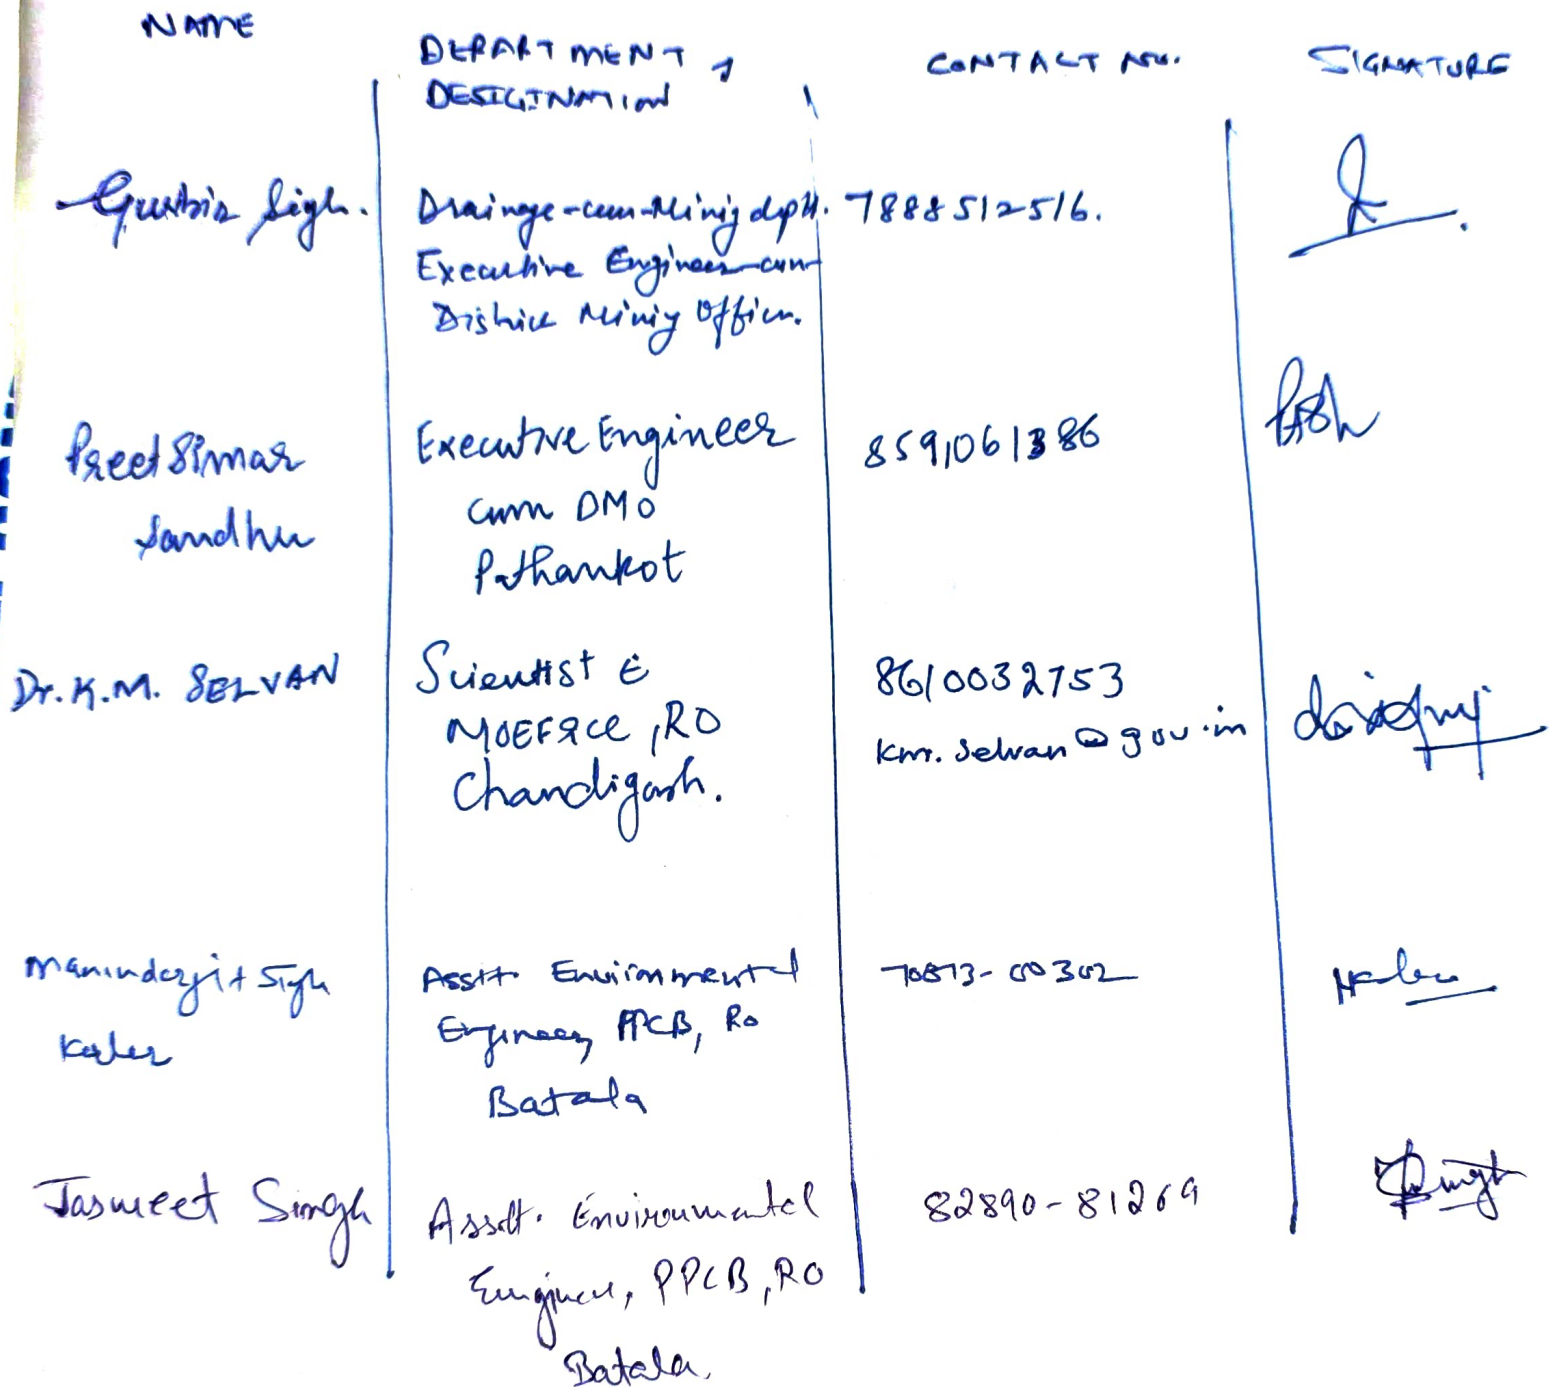 NAME
DEPARTMENT,
DESIGINATION
CONTACT NO.
SIGNATURE
Gurbir Sigh.
Drainage-cum-Mining dptt.
Executive Engineer-cum-
District Mining Officer.
7888512516.
Preet Simar
Sandhu
Executive Engineer
cum DMO
Pathankot
8591061386
Dr. K.M. SELVAN
Scientist E
MOEF&CC, RO
Chandigarh.
8610032753
km.selvan@gov.in
Maninderjit Sigh
Kaler
Asstt. Environmental
Engineer, PPCB, RO
Batala
70873-00302
Jasmeet Singh
Asstt. Environmental
Engineer, PPCB, RO
Batala.
82890-81269